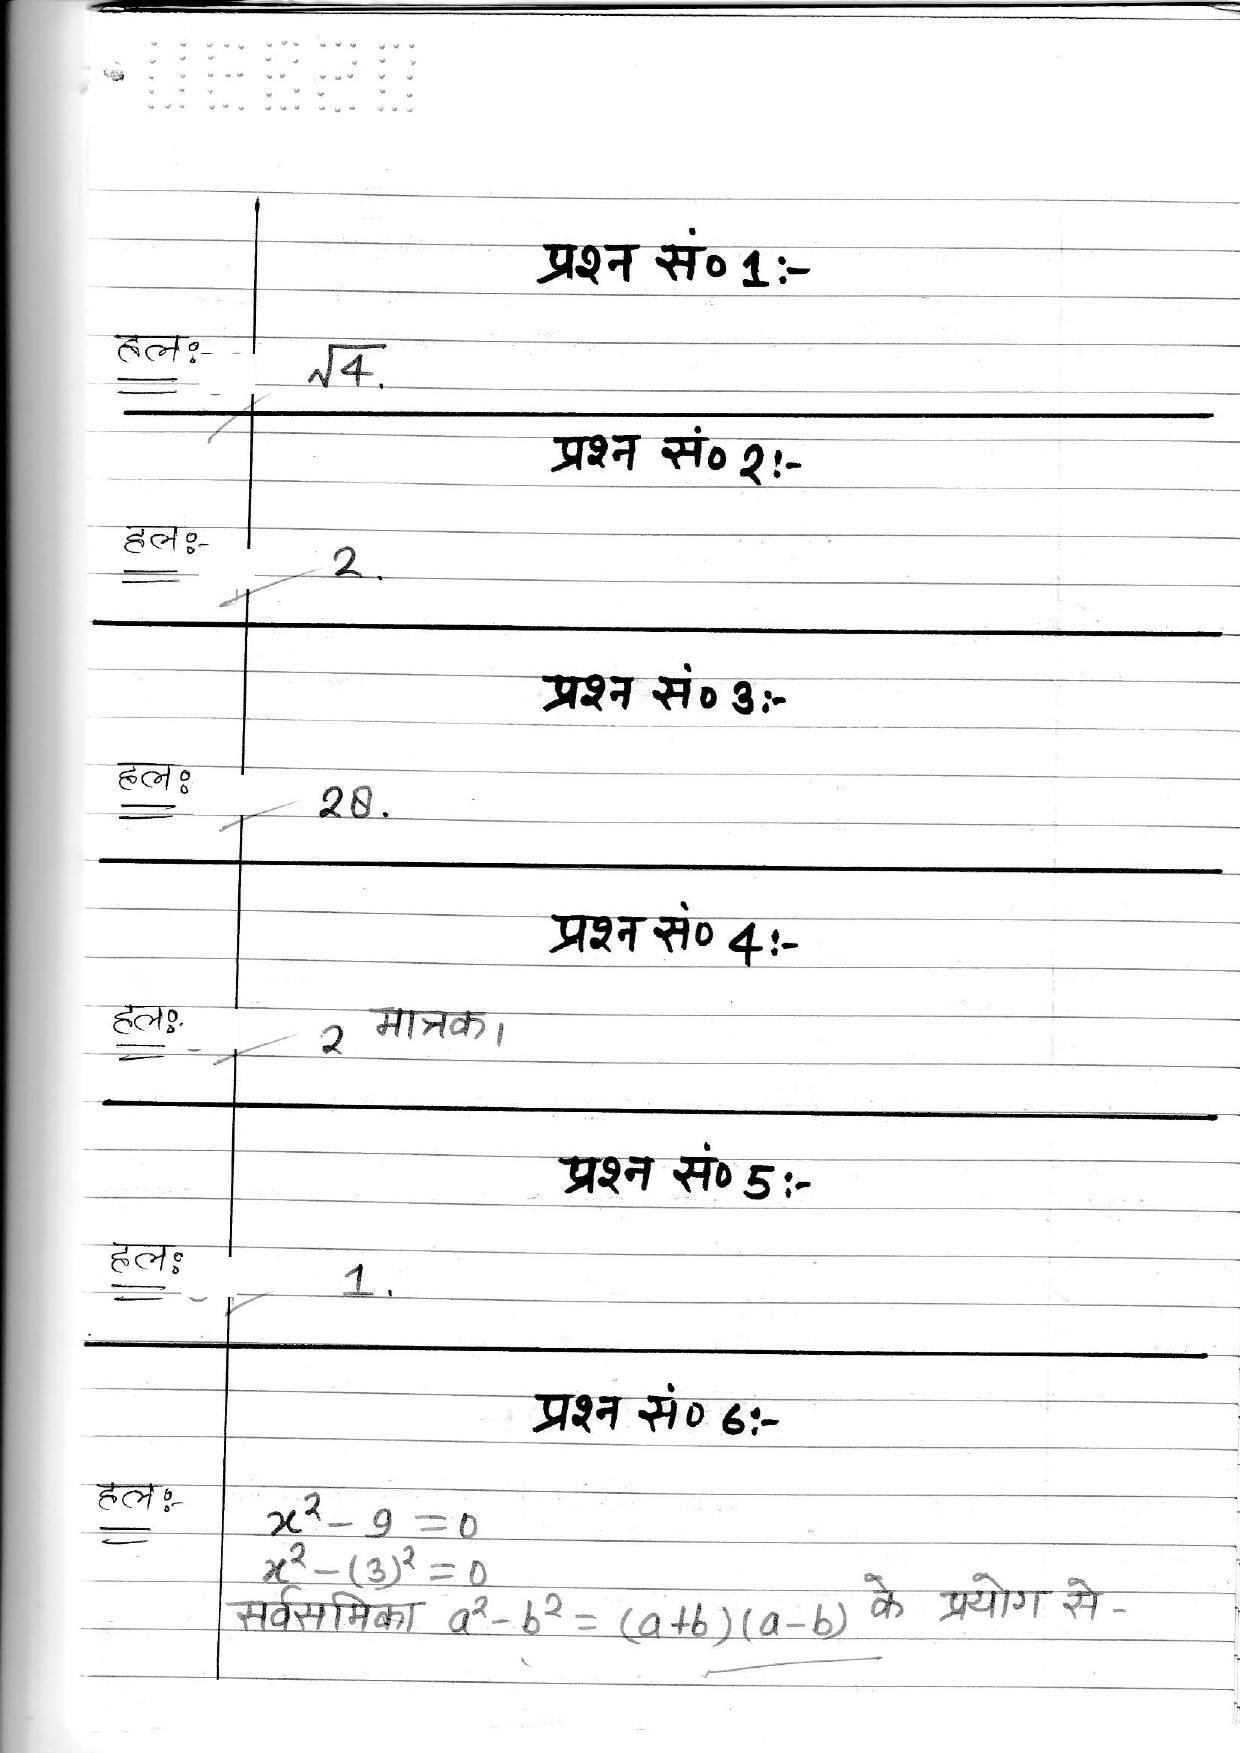 प्रश्न सं० 1:-
हल:- √4.
प्रश्न सं० 2:-
हल:- 2.
प्रश्न सं० 3:-
हल: 28.
प्रश्न सं० 4:-
हल:- 2 मात्रक।
प्रश्न सं० 5:-
हल: 1.
प्रश्न सं० 6:-
हल:- x² - 9 = 0
x² - (3)² = 0
सर्वसमिका a² - b² = (a+b)(a-b) के प्रयोग से -